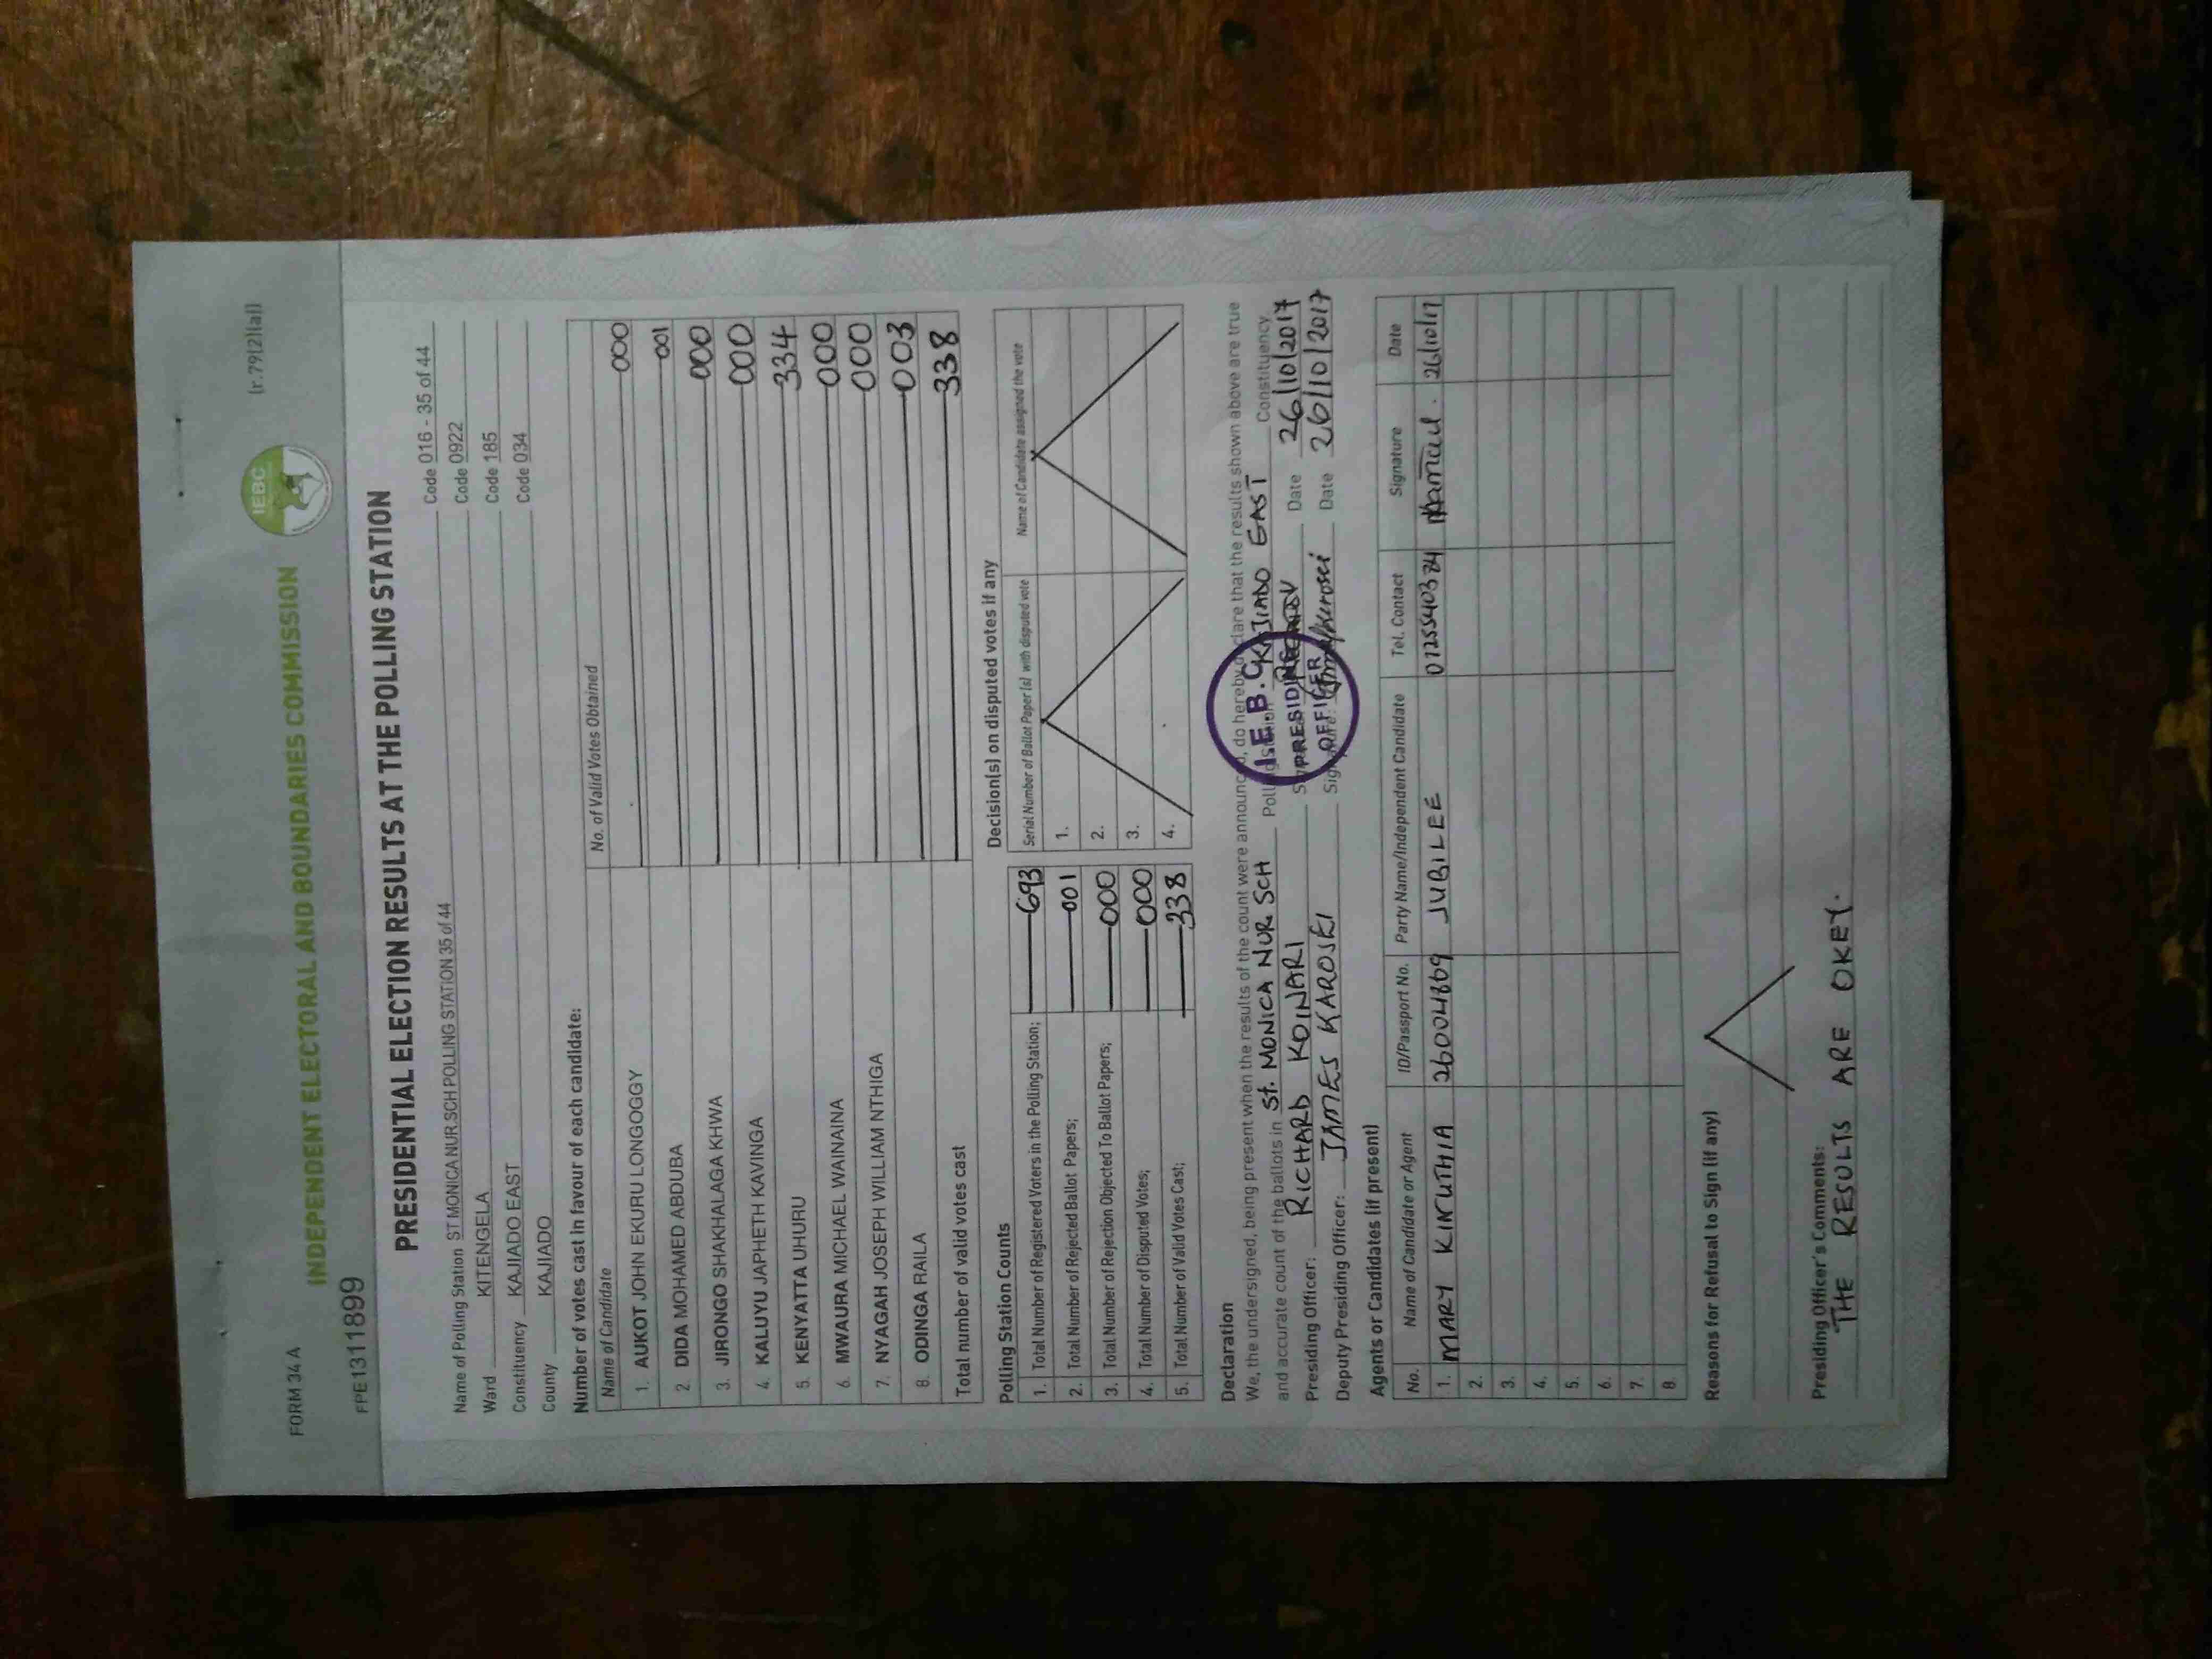 FORM 34 A
(r.79(2)(a))
IEBC
INDEPENDENT ELECTORAL AND BOUNDARIES COMMISSION
FPE1311899
PRESIDENTIAL ELECTION RESULTS AT THE POLLING STATION
Name of Polling Station ST MONICA NUR.SCH POLLING STATION 35 of 44 Code 016 - 35 of 44
Ward KITENGELA Code 0922
Constituency KAJIADO EAST Code 185
County KAJIADO Code 034
Number of votes cast in favour of each candidate:
Name of Candidate No. of Valid Votes Obtained
1. AUKOT JOHN EKURU LONGOGGY 000
2. DIDA MOHAMED ABDUBA 001
3. JIRONGO SHAKHALAGA KHWA 000
4. KALUYU JAPHETH KAVINGA 000
5. KENYATTA UHURU 334
6. MWAURA MICHAEL WAINAINA 000
7. NYAGAH JOSEPH WILLIAM NTHIGA 000
8. ODINGA RAILA 003
Total number of valid votes cast 338
Polling Station Counts
1. Total Number of Registered Voters in the Polling Station; 693
2. Total Number of Rejected Ballot Papers; 001
3. Total Number of Rejection Objected To Ballot Papers; 000
4. Total Number of Disputed Votes; 000
5. Total Number of Valid Votes Cast; 338
Decision(s) on disputed votes if any
Serial Number of Ballot Paper(s) with disputed vote Name of Candidate assigned the vote
1.
2.
3.
4.
Declaration
We, the undersigned, being present when the results of the count were announced, do hereby declare that the results shown above are true
and accurate count of the ballots in St. MONICA NUR SCH Polling Station KAJIADO EAST Constituency
Presiding Officer: RICHARD KOINARI Date 26/10/2017
Deputy Presiding Officer: JAMES KAROSEI Signature: Date 26/10/2017
I.E.B.C
PRESIDING
OFFICER
Agents or Candidates (if present)
No. Name of Candidate or Agent ID/Passport No. Party Name/Independent Candidate Tel. Contact Signature Date
1. MARY KINUTHIA 26004869 JUBILEE 26/10/17
2.
3.
4.
5.
6.
7.
8.
Reasons for Refusal to Sign (if any)
Presiding Officer's Comments:
THE RESULTS ARE OKEY.